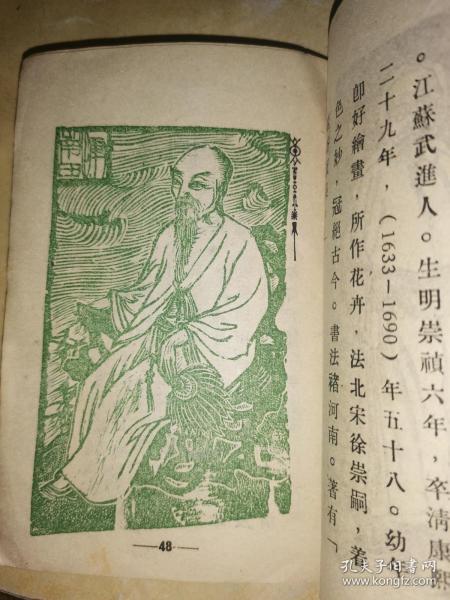 。江蘇武進人。生明崇禎六年，卒清康熙
二十九年，（1633—1690）年五十八。幼年
卽好繪畫，所作花卉，法北宋徐崇嗣，着
色之妙，冠絕古今。書法褚河南。著有「
—48—
孔夫子旧书网
www.kongfz.com